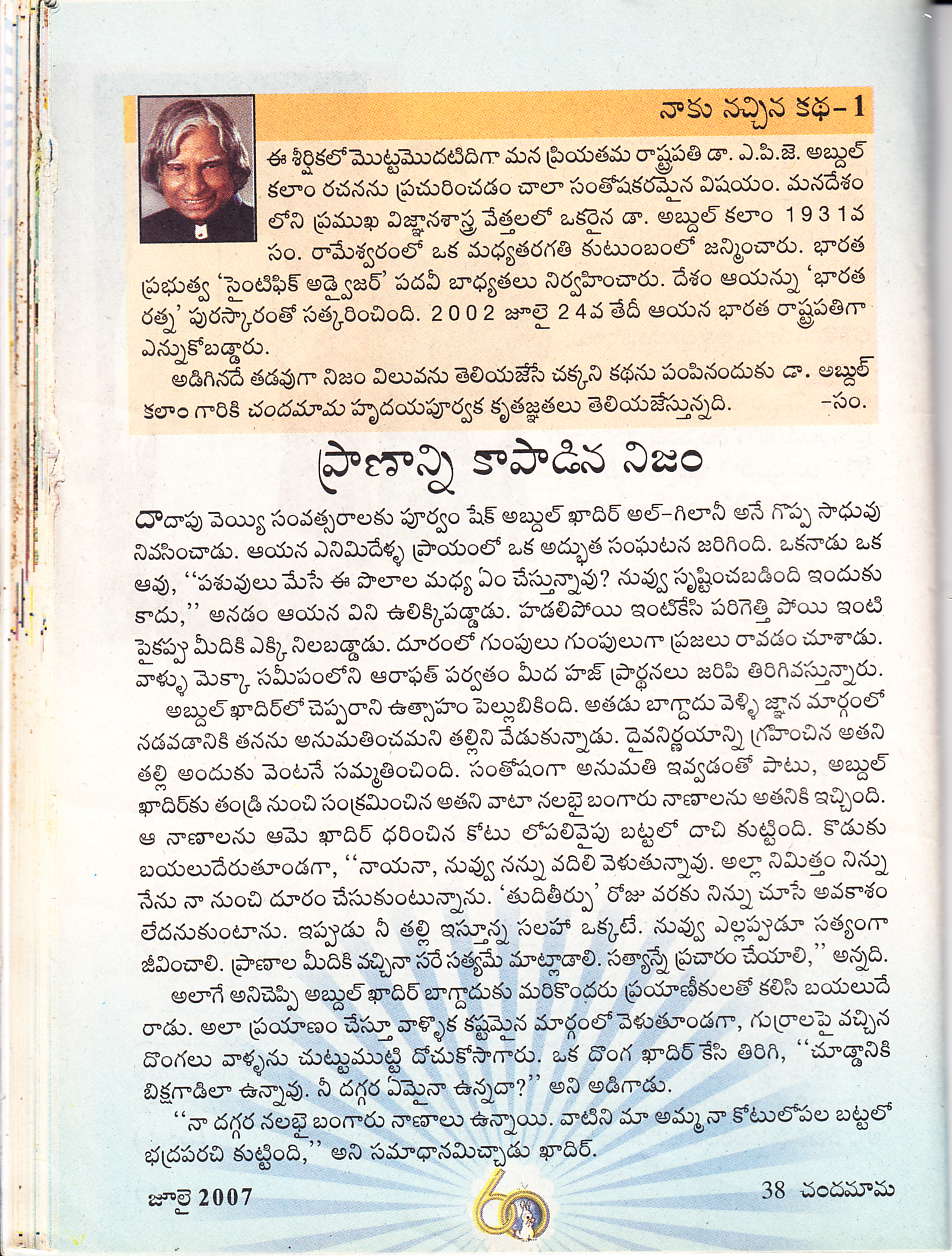 నాకు నచ్చిన కథ-1
ఈ శీర్షికలో మొట్టమొదటిదిగా మన ప్రియతమ రాష్ట్రపతి డా. ఎ.పి.జె. అబ్దుల్
కలాం రచనను ప్రచురించడం చాలా సంతోషకరమైన విషయం. మనదేశం
లోని ప్రముఖ విజ్ఞానశాస్త్ర వేత్తలలో ఒకరైన డా. అబ్దుల్ కలాం 1931వ
సం. రామేశ్వరంలో ఒక మధ్యతరగతి కుటుంబంలో జన్మించారు. భారత
ప్రభుత్వ ‘సైంటిఫిక్ అడ్వైజర్’ పదవీ బాధ్యతలు నిర్వహించారు. దేశం ఆయన్ను ‘భారత
రత్న’ పురస్కారంతో సత్కరించింది. 2002 జూలై 24వ తేదీ ఆయన భారత రాష్ట్రపతిగా
ఎన్నుకోబడ్డారు.
అడిగినదే తడవుగా నిజం విలువను తెలియజేసే చక్కని కథను పంపినందుకు డా. అబ్దుల్
కలాం గారికి చందమామ హృదయపూర్వక కృతజ్ఞతలు తెలియజేస్తున్నది. -సం.
ప్రాణాన్ని కాపాడిన నిజం
దాదాపు వెయ్యి సంవత్సరాలకు పూర్వం షేక్ అబ్దుల్ ఖాదిర్ అల్-గిలానీ అనే గొప్ప సాధువు
నివసించాడు. ఆయన ఎనిమిదేళ్ళ ప్రాయంలో ఒక అద్భుత సంఘటన జరిగింది. ఒకనాడు ఒక
ఆవు, ‘‘పశువులు మేసే ఈ పొలాల మధ్య ఏం చేస్తున్నావు? నువ్వు సృష్టించబడింది ఇందుకు
కాదు,’’ అనడం ఆయన విని ఉలిక్కిపడ్డాడు. హడలిపోయి ఇంటికేసి పరిగెత్తి పోయి ఇంటి
పైకప్పు మీదికి ఎక్కి నిలబడ్డాడు. దూరంలో గుంపులు గుంపులుగా ప్రజలు రావడం చూశాడు.
వాళ్ళు మెక్కా సమీపంలోని ఆరాఫత్ పర్వతం మీద హజ్ ప్రార్థనలు జరిపి తిరిగివస్తున్నారు.
అబ్దుల్ ఖాదిర్‌లో చెప్పరాని ఉత్సాహం పెల్లుబికింది. అతడు బాగ్దాదు వెళ్ళి జ్ఞాన మార్గంలో
నడవడానికి తనను అనుమతించమని తల్లిని వేడుకున్నాడు. దైవనిర్ణయాన్ని గ్రహించిన అతని
తల్లి అందుకు వెంటనే సమ్మతించింది. సంతోషంగా అనుమతి ఇవ్వడంతో పాటు, అబ్దుల్
ఖాదిర్‌కు తండ్రి నుంచి సంక్రమించిన అతని వాటా నలభై బంగారు నాణాలను అతనికి ఇచ్చింది.
ఆ నాణాలను ఆమె ఖాదిర్ ధరించిన కోటు లోపలివైపు బట్టలో దాచి కుట్టింది. కొడుకు
బయలుదేరుతూండగా, ‘‘నాయనా, నువ్వు నన్ను వదిలి వెళుతున్నావు. అల్లా నిమిత్తం నిన్ను
నేను నా నుంచి దూరం చేసుకుంటున్నాను. ‘తుదితీర్పు’ రోజు వరకు నిన్ను చూసే అవకాశం
లేదనుకుంటాను. ఇప్పుడు నీ తల్లి ఇస్తూన్న సలహా ఒక్కటే. నువ్వు ఎల్లప్పుడూ సత్యంగా
జీవించాలి. ప్రాణాల మీదికి వచ్చినా సరే సత్యమే మాట్లాడాలి. సత్యాన్నే ప్రచారం చేయాలి,’’ అన్నది.
అలాగే అనిచెప్పి అబ్దుల్ ఖాదిర్ బాగ్దాదుకు మరికొందరు ప్రయాణీకులతో కలిసి బయలుదే
రాడు. అలా ప్రయాణం చేస్తూ వాళ్ళొక కష్టమైన మార్గంలో వెళుతూండగా, గుర్రాలపై వచ్చిన
దొంగలు వాళ్ళను చుట్టుముట్టి దోచుకోసాగారు. ఒక దొంగ ఖాదిర్ కేసి తిరిగి, ‘‘చూడ్డానికి
బిక్షగాడిలా ఉన్నావు. నీ దగ్గర ఏమైనా ఉన్నదా?’’ అని అడిగాడు.
‘‘నా దగ్గర నలభై బంగారు నాణాలు ఉన్నాయి. వాటిని మా అమ్మ నా కోటులోపల బట్టలో
భద్రపరచి కుట్టింది,’’ అని సమాధానమిచ్చాడు ఖాదిర్.
జూలై 2007
60
38 చందమామ